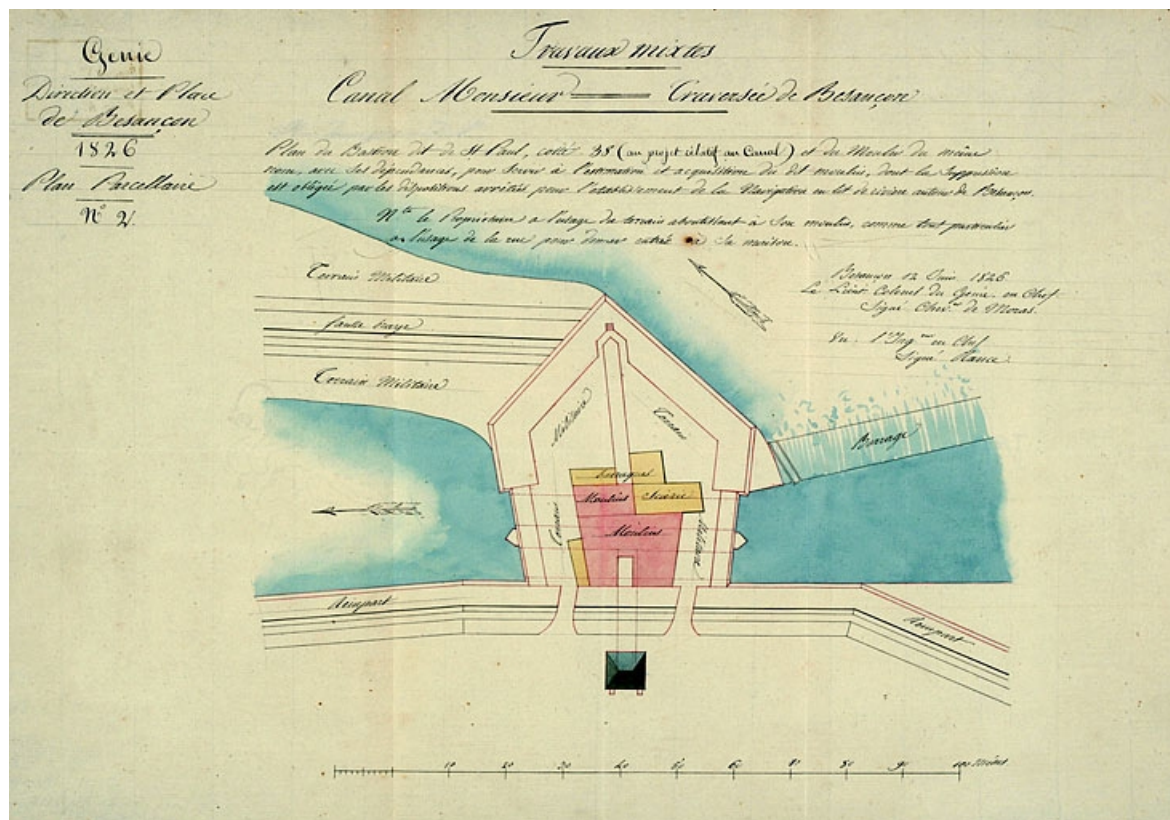 Génie
Direction et Place
de Besançon
1826
Plan Parcellaire
N° 2.
Travaux mixtes
Canal Monsieur Traversée de Besançon
Plan du Bastion dit de St Paul, coté 38 (au projet rélatif au Canal) et du Moulin du même
nom, avec ses dépendances, pour servir à l'estimation et acquisition du dit moulin, dont la suppression
est obligée par les dispositions arrêtées pour l'établissement de la Navigation en lit de rivière autour de Besançon.
Nta le Propriétaire a l'usage du terrain aboutissant à son moulin, comme tout particulier
a l'usage de la rue pour donner entrée à sa maison.
Besançon 12 Juin 1826
Le Lieut Colonel du Génie en Chef
Signé Chevr de Moras.
Vu l'Ingr en Chef
Signé
Terrain Militaire
fausse braye
Terrain Militaire
Militaire
Terrain
Barrage
Moulins
Scierie
Terrain
Moulins
Militaire
Rempart
Rempart
10 20 30 40 50 60 80 90 100 mètres